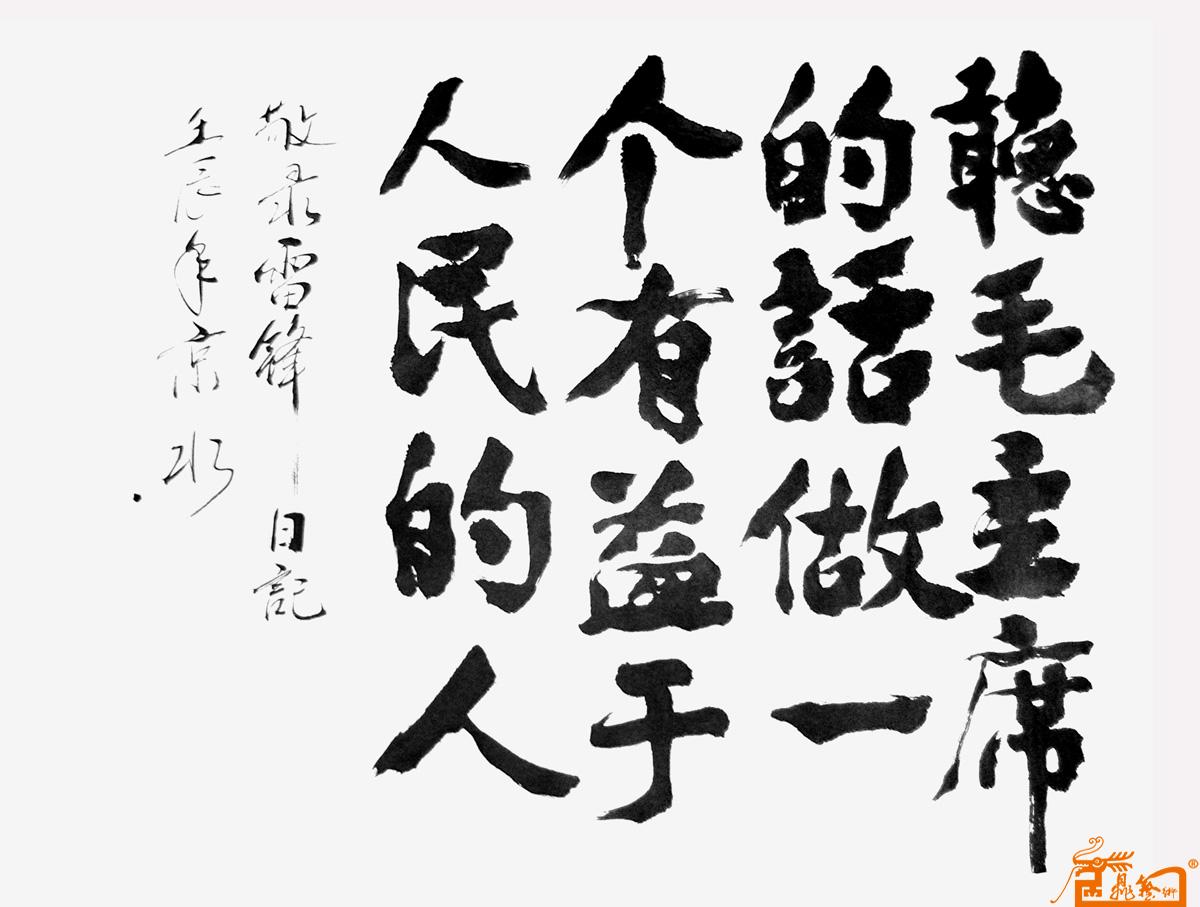 聽毛主席
的話做一
个有益于
人民的人
敬录雷锋日記
壬辰年京水